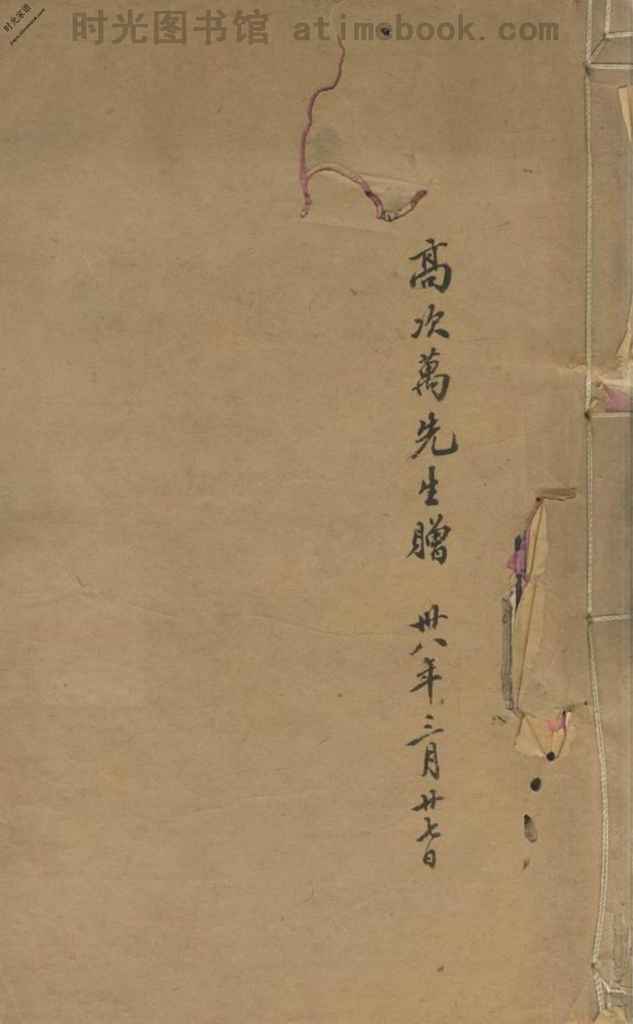 时光图书馆 atimebook.com
高次萬先生贈 卅八年三月廿七日